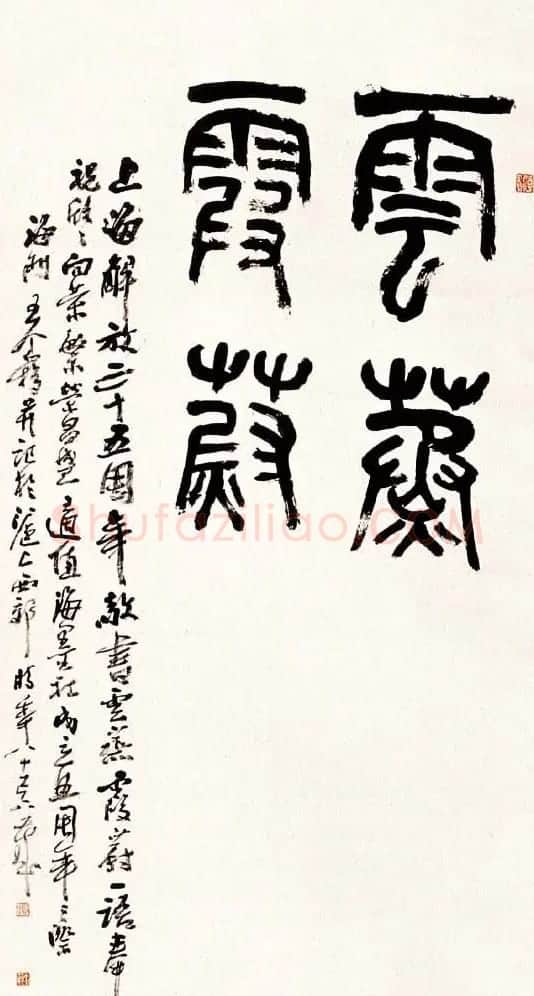 雲蒸
霞蔚
上海解放三十五周年敬書雲蒸霞蔚一語奉
祝欣欣向榮繁榮昌盛適值海墨社成立五周年之際
海門王个簃并記於滬上西郊時年八十
Shufaziliao.COM